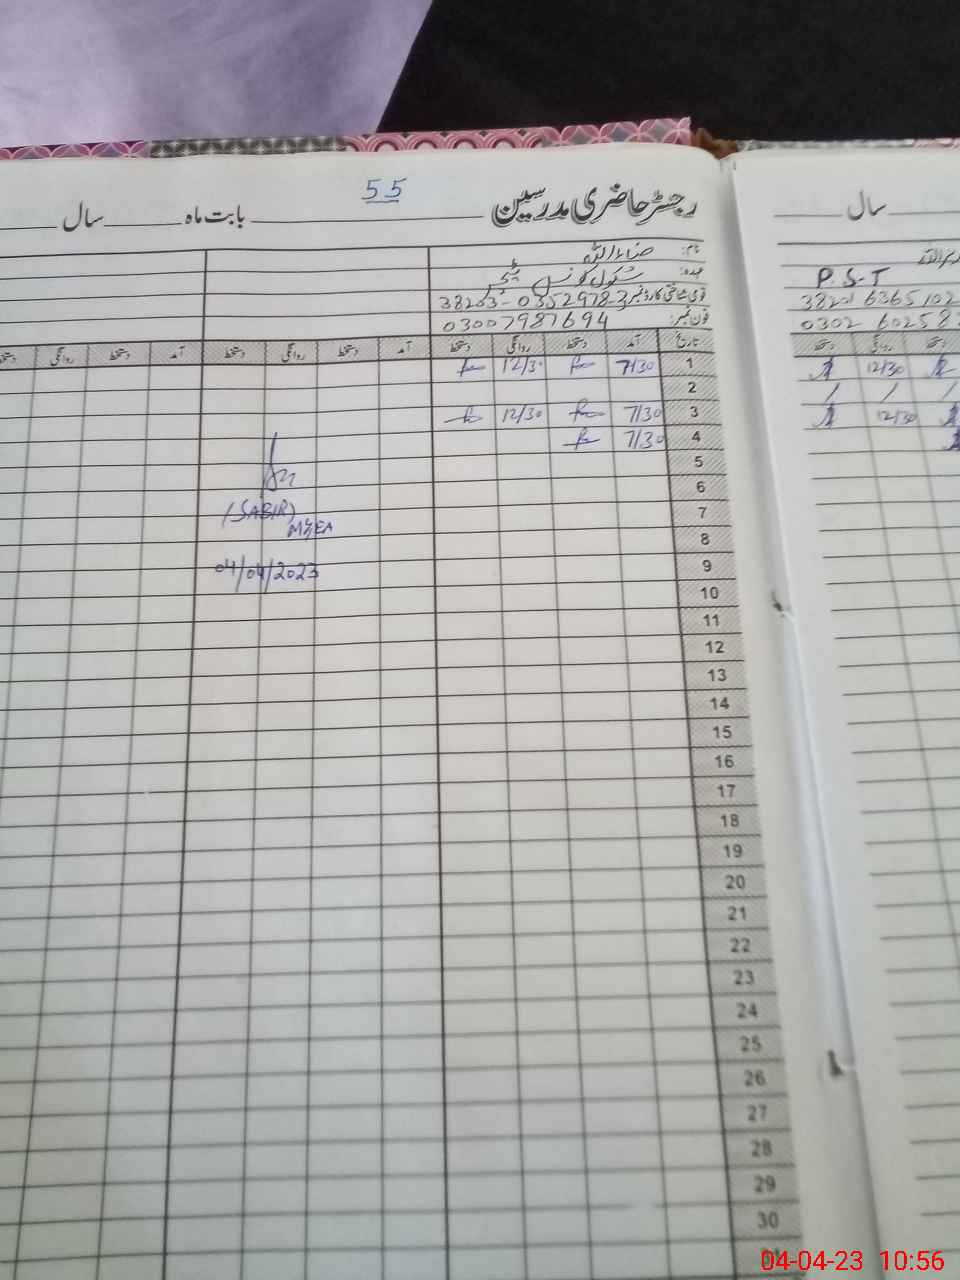 55
رجسٹر حاضری مدرسین ______ بابت ماہ ______ سال ______
سال ______
نام: ضیاءاللہ
عہدہ: سکول کونسل ٹیچر
قومی شناختی کارڈ نمبر 38203-0352978-3
فون نمبر: 03007987694
P.S.T
0302
تاریخ آمد دستخط روانگی دستخط آمد دستخط روانگی دستخط آمد دستخط روانگی دستخط
دستخط روانگی دستخط
1 7/30 12/30
12/30
2
/ / /
3 7/30 12/30
12/30
4 7/30
5
6
7
8
9
10
11
12
13
14
15
16
17
18
19
20
21
22
23
24
25
26
27
28
29
30
(SABIR)
MEA
04/04/2023
04-04-23 10:56